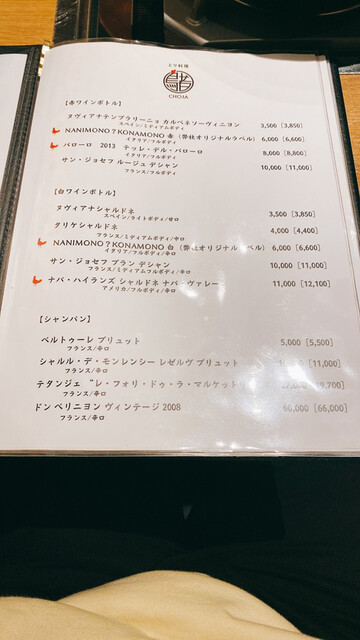 とり料理
CHOJA
【赤ワインボトル】
ヌヴィアナテンプラリーニョ カルベネソーヴィニヨン 3,500 [3,850]
スペイン/ミディアムボディ
NANIMONO?KONAMONO 赤 (弊社オリジナルラベル) 6,000 [6,600]
イタリア/フルボディ
バローロ 2013 テッレ・デル・バローロ 8,000 [8,800]
イタリア/フルボディ
サン・ジョセフ ルージュ デシャン 10,000 [11,000]
フランス/フルボディ
【白ワインボトル】
ヌヴィアナシャルドネ 3,500 [3,850]
スペイン/ライトボディ/辛口
ダリケシャルドネ 4,000 [4,400]
フランス/ミディアムボディ/中口
NANIMONO?KONAMONO 白 (弊社オリジナルラベル) 6,000 [6,600]
イタリア/フルボディ/辛口
サン・ジョセフ ブラン デシャン 10,000 [11,000]
フランス/ミディアムフルボディ/辛口
ナパ・ハイランズ シャルドネ ナパ・ヴァレー 11,000 [12,100]
アメリカ/フルボディ/辛口
【シャンパン】
ベルトゥーレ ブリュット 5,000 [5,500]
フランス/辛口
シャルル・デ・モンレンシー レゼルヴ ブリュット [11,000]
フランス/辛口
テタンジェ “レ・フォリ・ドゥ・ラ・マルケット
フランス/辛口
ドン ペリニヨン ヴィンテージ 2008 60,000 [66,000]
フランス/辛口